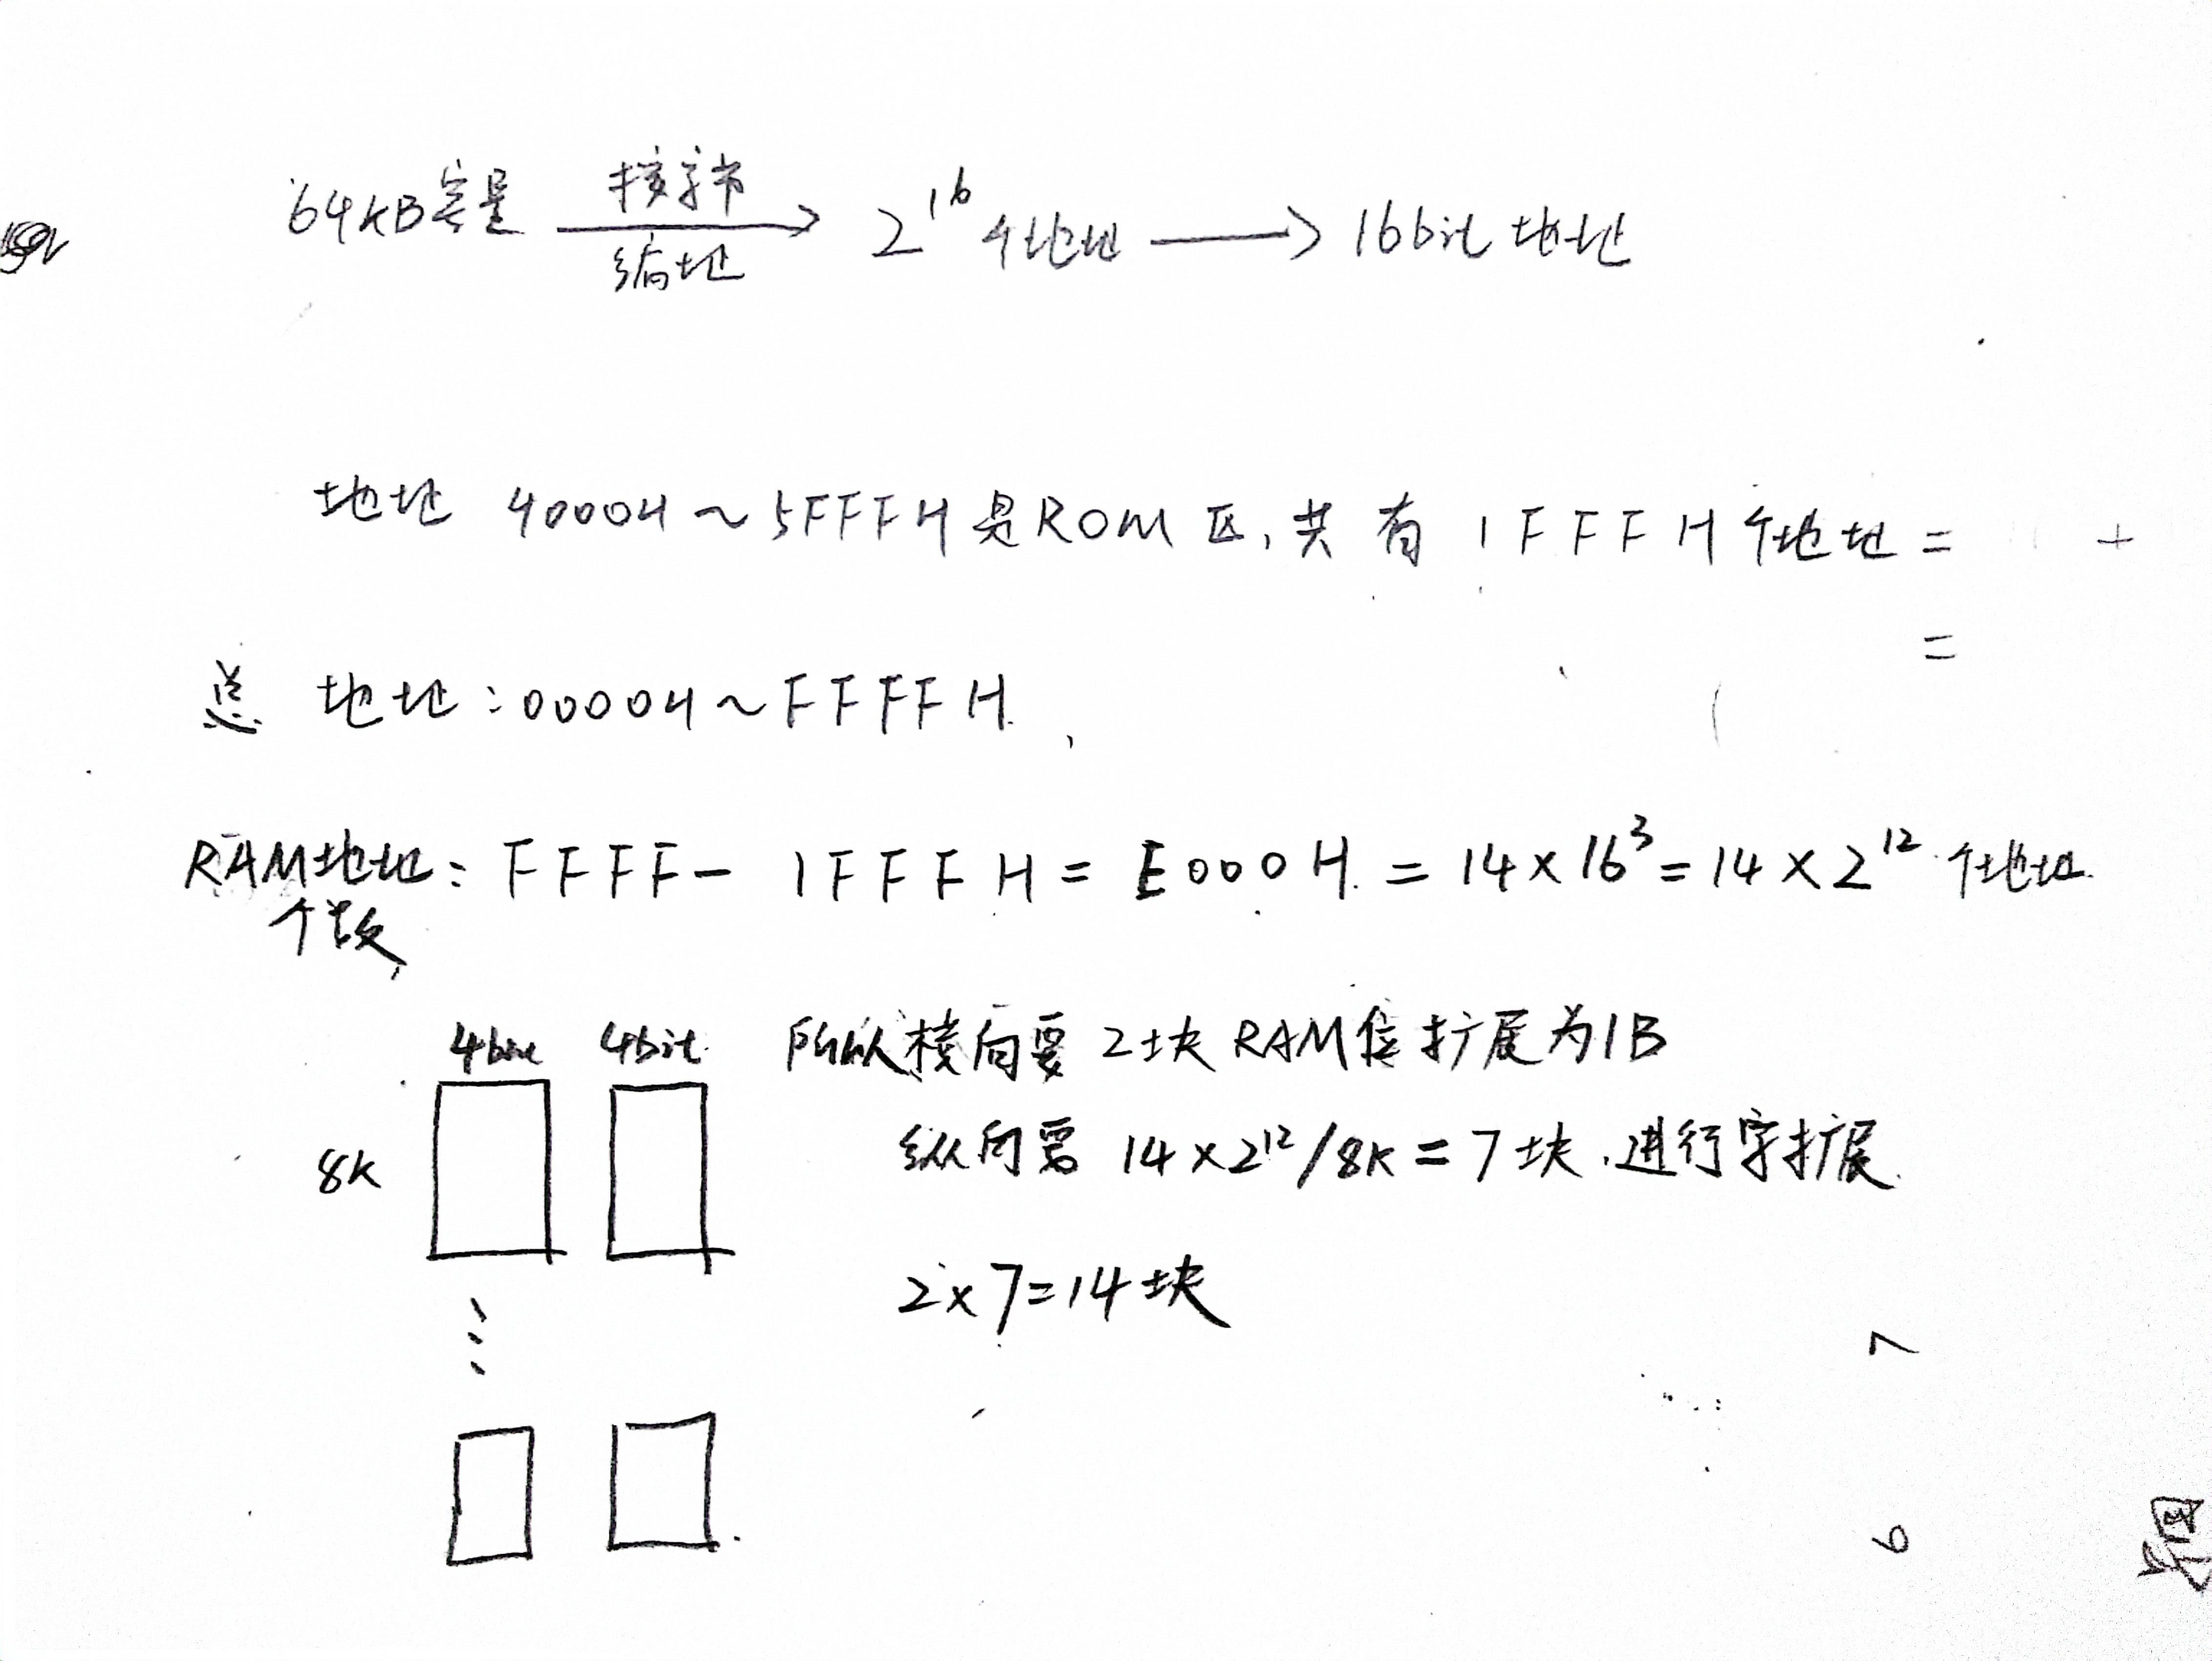 64KB容量 按字节编址 → 2^16个地址 → 16bit 地址
地址 4000H ~ 5FFFH是ROM区,共有 1FFFH个地址 = +
=
总 地址:0000H ~ FFFFH.
RAM地址个数: FFFF - 1FFFH = E000H. = 14 × 16^3 = 14 × 2^12 个地址.
4bit 4bit. 所以横向要 2块 RAM位扩展为1B
8K 纵向需 14×2^12/8K = 7块.进行字扩展.
2×7=14块
7
6